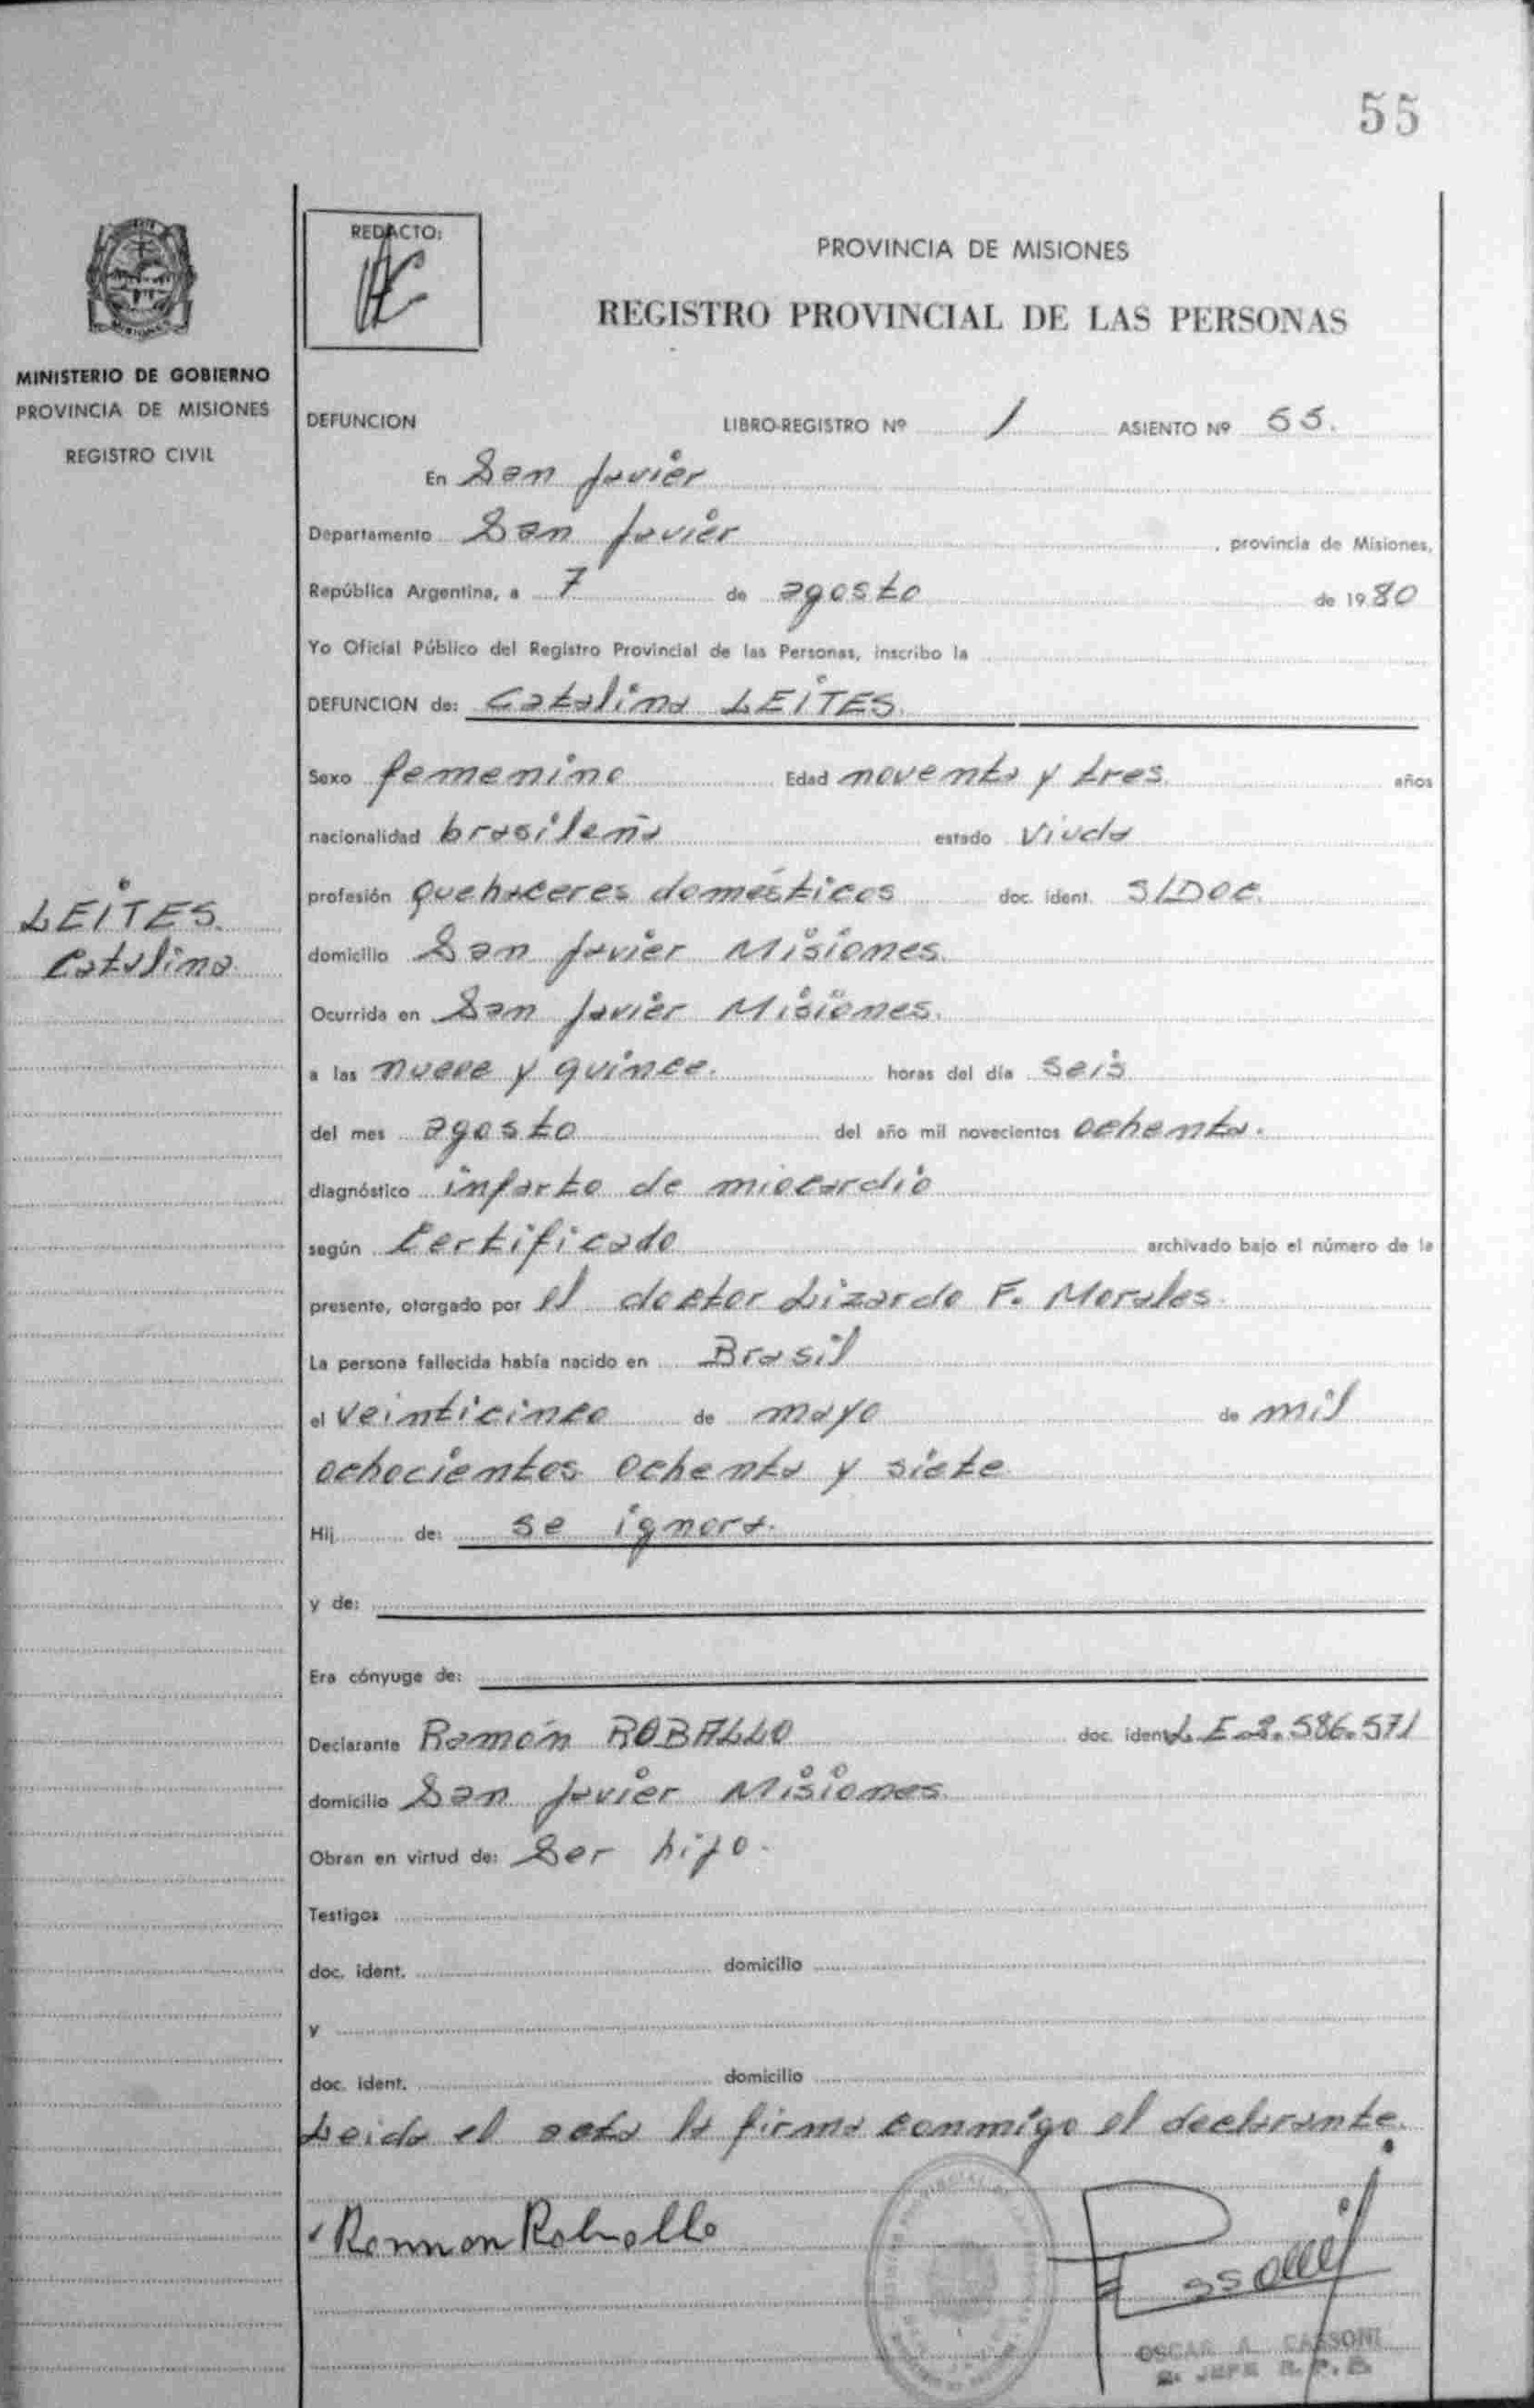 55
REDACTO:
PROVINCIA DE MISIONES
REGISTRO PROVINCIAL DE LAS PERSONAS
MINISTERIO DE GOBIERNO
PROVINCIA DE MISIONES
REGISTRO CIVIL
DEFUNCION LIBRO-REGISTRO Nº 1 ASIENTO Nº 55.
En San Javier
Departamento San Javier, provincia de Misiones,
República Argentina, a 7 de agosto de 1980
Yo Oficial Público del Registro Provincial de las Personas, inscribo la
DEFUNCION de: Catalina LEITES.
Sexo femenino Edad noventa y tres. años
nacionalidad brasileña estado Viuda
LEITES.
Catalina
profesión Quehaceres domésticos doc. ident. S/DOC.
domicilio San Javier Misiones.
Ocurrida en San Javier Misiones.
a las nueve y quince. horas del día seis
del mes agosto del año mil novecientos ochenta.
diagnóstico infarto de miocardio
según Certificado archivado bajo el número de la
presente, otorgado por el doctor Lizardo F. Morales.
La persona fallecida había nacido en Brasil
el veinticinco de mayo de mil
ochocientos ochenta y siete
Hij de: se ignora.
y de:
Era cónyuge de:
Declarante Ramón ROBALLO doc. ident. L.E 2.586.571
domicilio San Javier Misiones
Obran en virtud de: Ser hijo.
Testigos
doc. ident. domicilio
y
doc. ident. domicilio
Leida el acta la firma conmigo el declarante.
Ramon Roballo
OSCAR A. CASSONI
JEFE R. P. P.